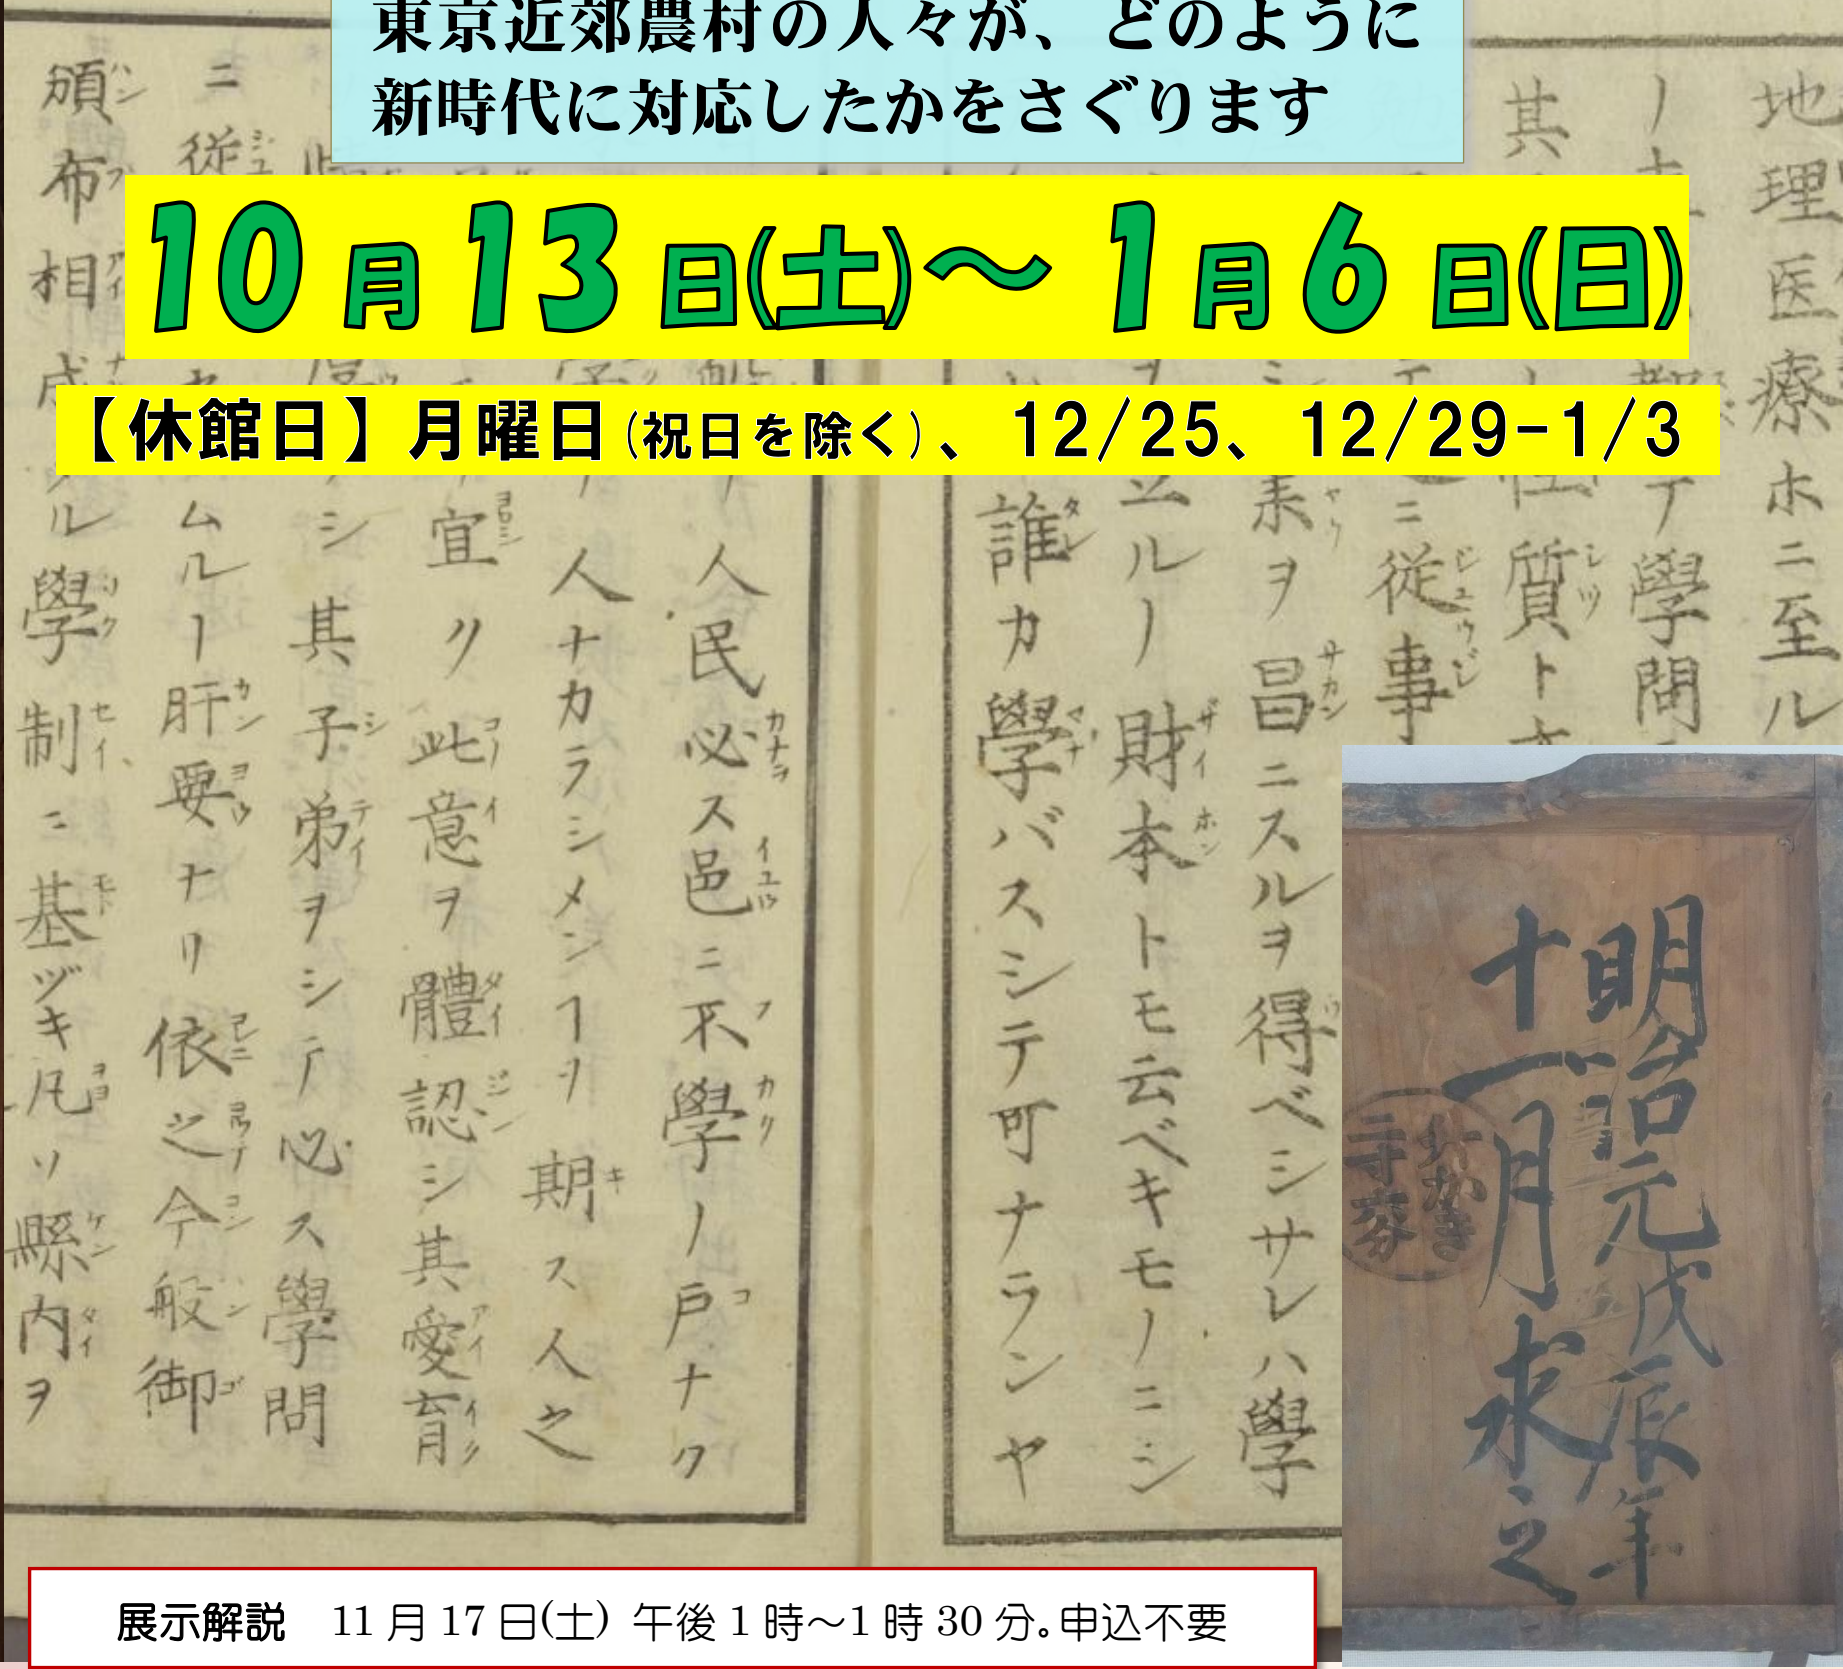 東京近郊農村の人々が、どのように
新時代に対応したかをさぐります
10月13日(土)～1月6日(日)
【休館日】月曜日(祝日を除く)、12/25、12/29-1/3
地理医療ホニ至ル
學問
質ト
ニ従事
業ヲ昌ニスルヲ得ベシサレハ學
立ルノ財本トモ云ベキモノニシ
誰カ學バスシテ可ナランヤ
人民必ス邑ニ不學ノ戸ナク
人ナカラシメンヿヲ期ス人之
宜ク此意ヲ體認シ其愛育
シ其子弟ヲシテ必ス學問
ニ従
ムルー肝要ナリ依之今般御
頒布相成ル學制ニ基ヅキ凡ソ縣内ヲ
明治元戊辰年
十一月求之
展示解説 11月17日(土) 午後1時～1時30分。申込不要